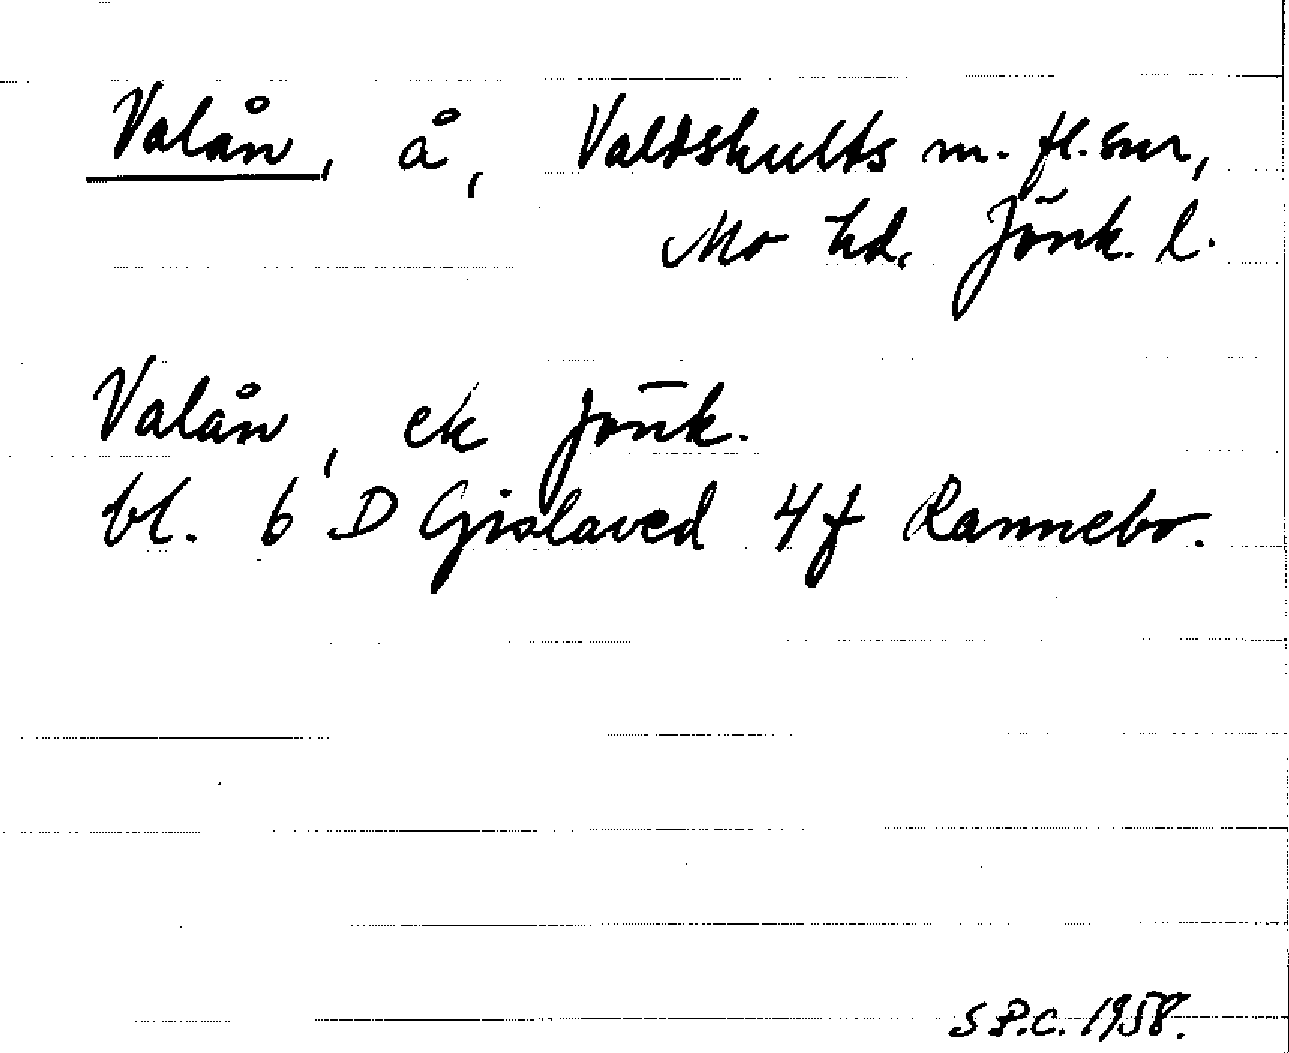 Valån, å, Valdshults m. fl. snr,
Mo hd. Jönk. l.
Valån, ek Jönk.
bl. 6 D Gislaved 4f Rannebo.
S P.C. 1958.